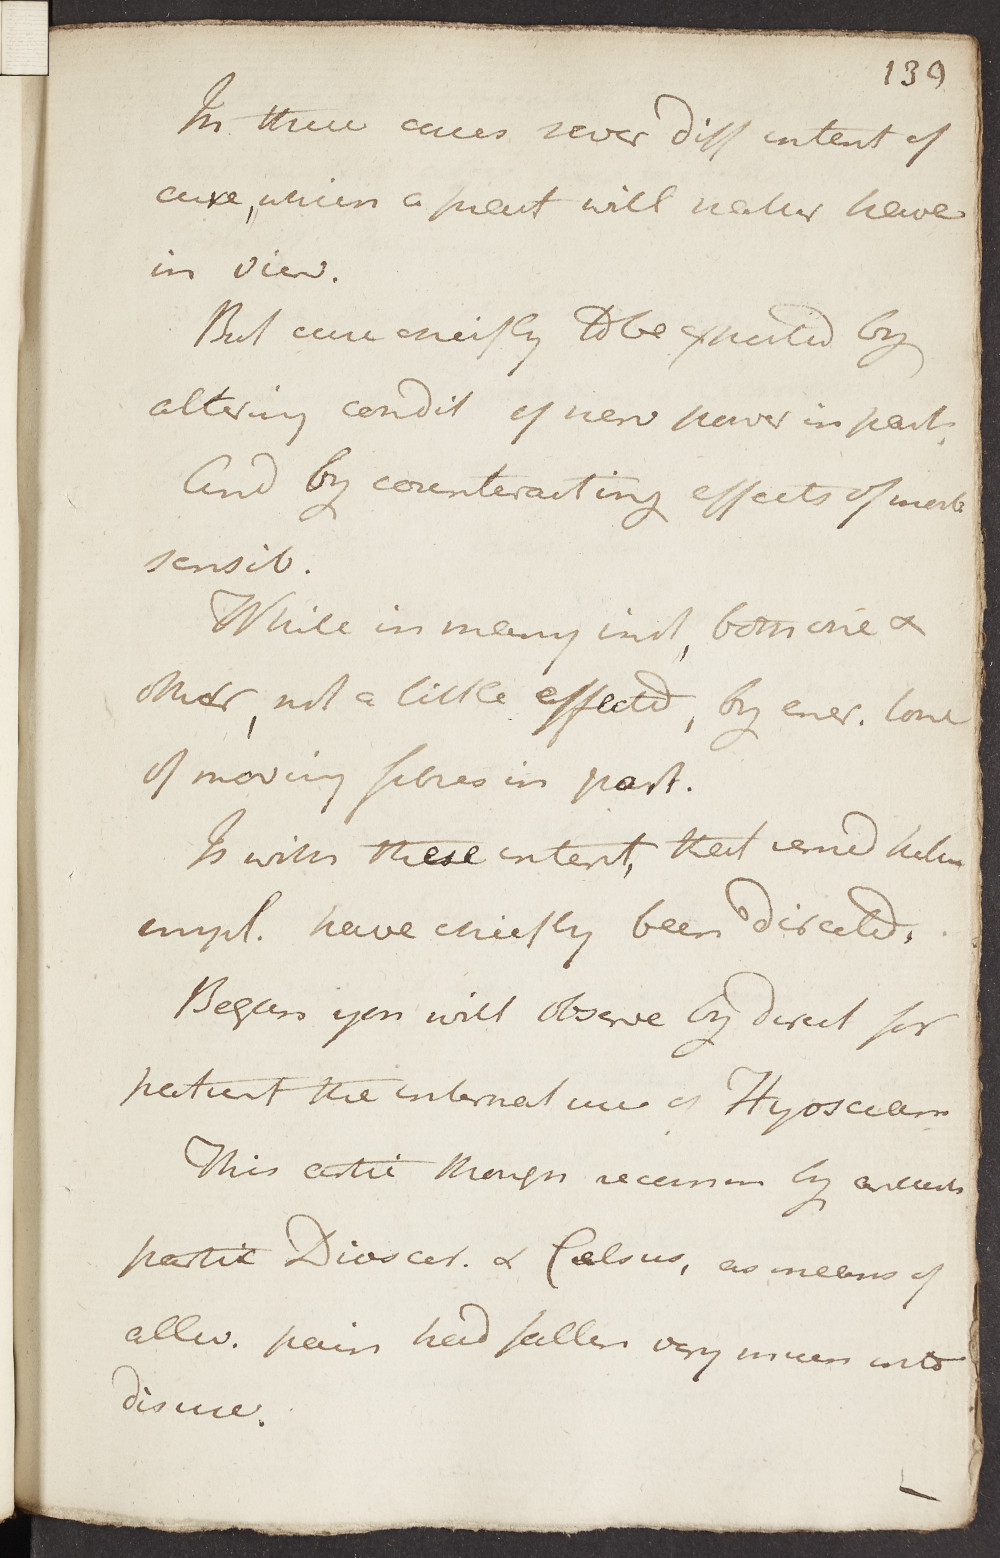 139
In these cases sever Diff intent of
cure, which a pract will natur have
in view.
But cure chiefly to be expected by
altering condit of nerv power in part,
And by counteracting effects of morb
sensib.
While in many inst, both one &
other, not a little effected, by encr. tone
of moving fibres in part.
Is with these intent, that remed hither
empl. have chiefly been directed.
Began you will observe by direct for
patient the internal use of Hyosciam
This artic though recomm by ancients
partic Dioscor. & Celsus, as means of
allev. pain had fallen very much into
disuse.